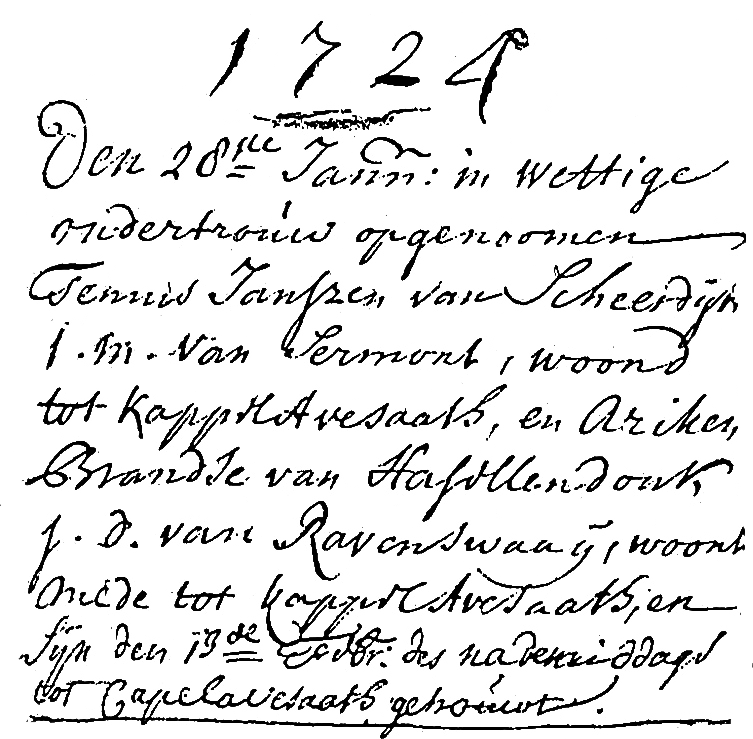 1724
Den 28ste Jann: in wettige
ondertrouw opgenoomen
Teunis Janszen van Scheerdijk
j.m. van Jermont, woond
tot Kappil Avesaath, en Ariken
Brandse van Hasillendonk
j.d. van Ravenswaaÿ, woont
mede tot Kappil Avesaath, en
sijn den 13de Febr: des nademiddags
tot Capelavesaath gehouwt.